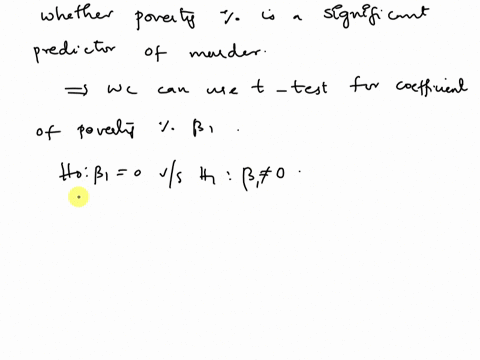 whether poverty % is a significant
predictor of murder.
⇒ we can use t-test for coefficient
of poverty % β₁.
H₀: β₁ = 0 v/s H₁: β₁ ≠ 0.